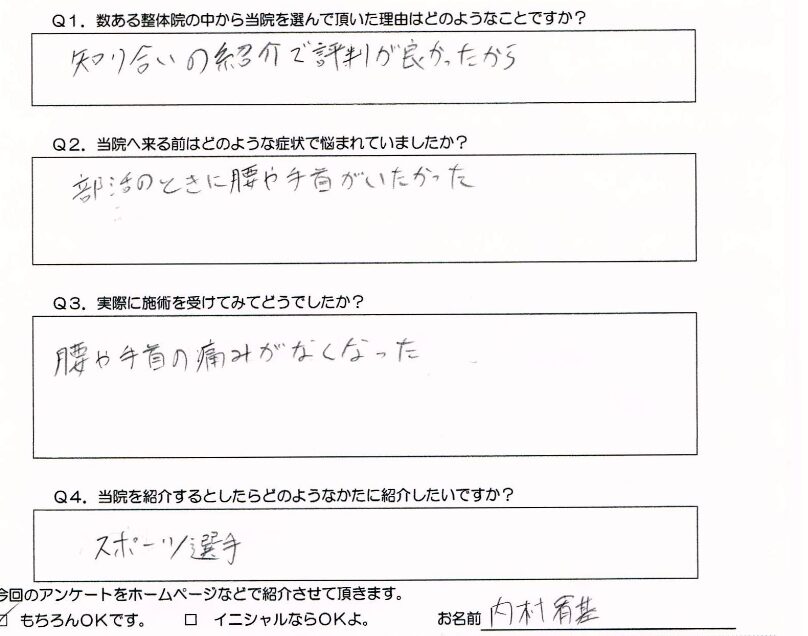 Q1．数ある整体院の中から当院を選んで頂いた理由はどのようなことですか？
知り合いの紹介で評判が良かったから
Q2．当院へ来る前はどのような症状で悩まれていましたか？
部活のときに腰や手首がいたかった
Q3．実際に施術を受けてみてどうでしたか？
腰や手首の痛みがなくなった
Q4．当院を紹介するとしたらどのようなかたに紹介したいですか？
スポーツ選手
今回のアンケートをホームページなどで紹介させて頂きます。
☑ もちろんOKです。 □ イニシャルならOKよ。 お名前 内村